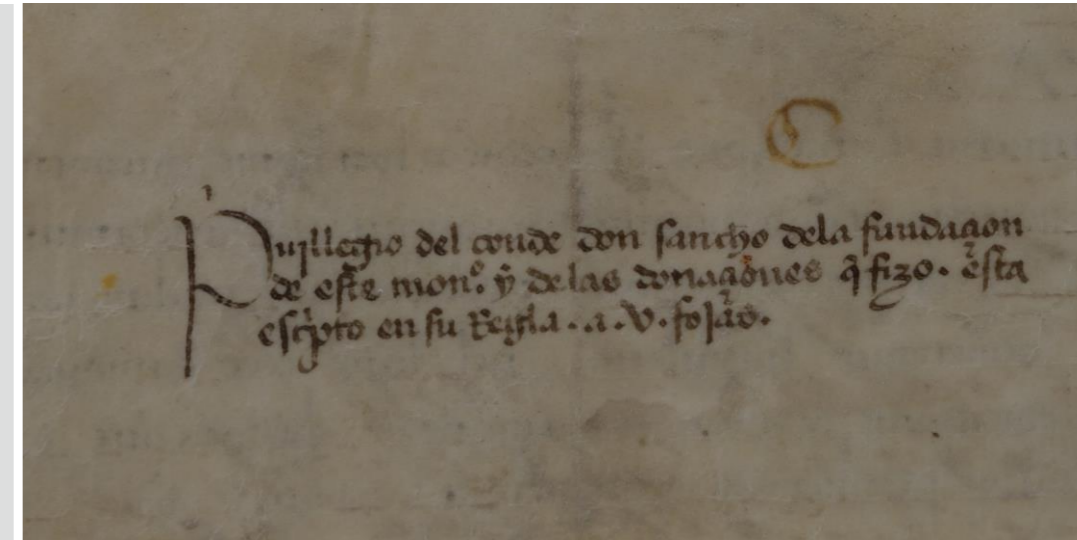 C
Puillegio del conde don sancho dela fundacion
de este mon.º y delas donaciones q̃ fizo. esta
escpto en su Regla. .a. v. fojas.